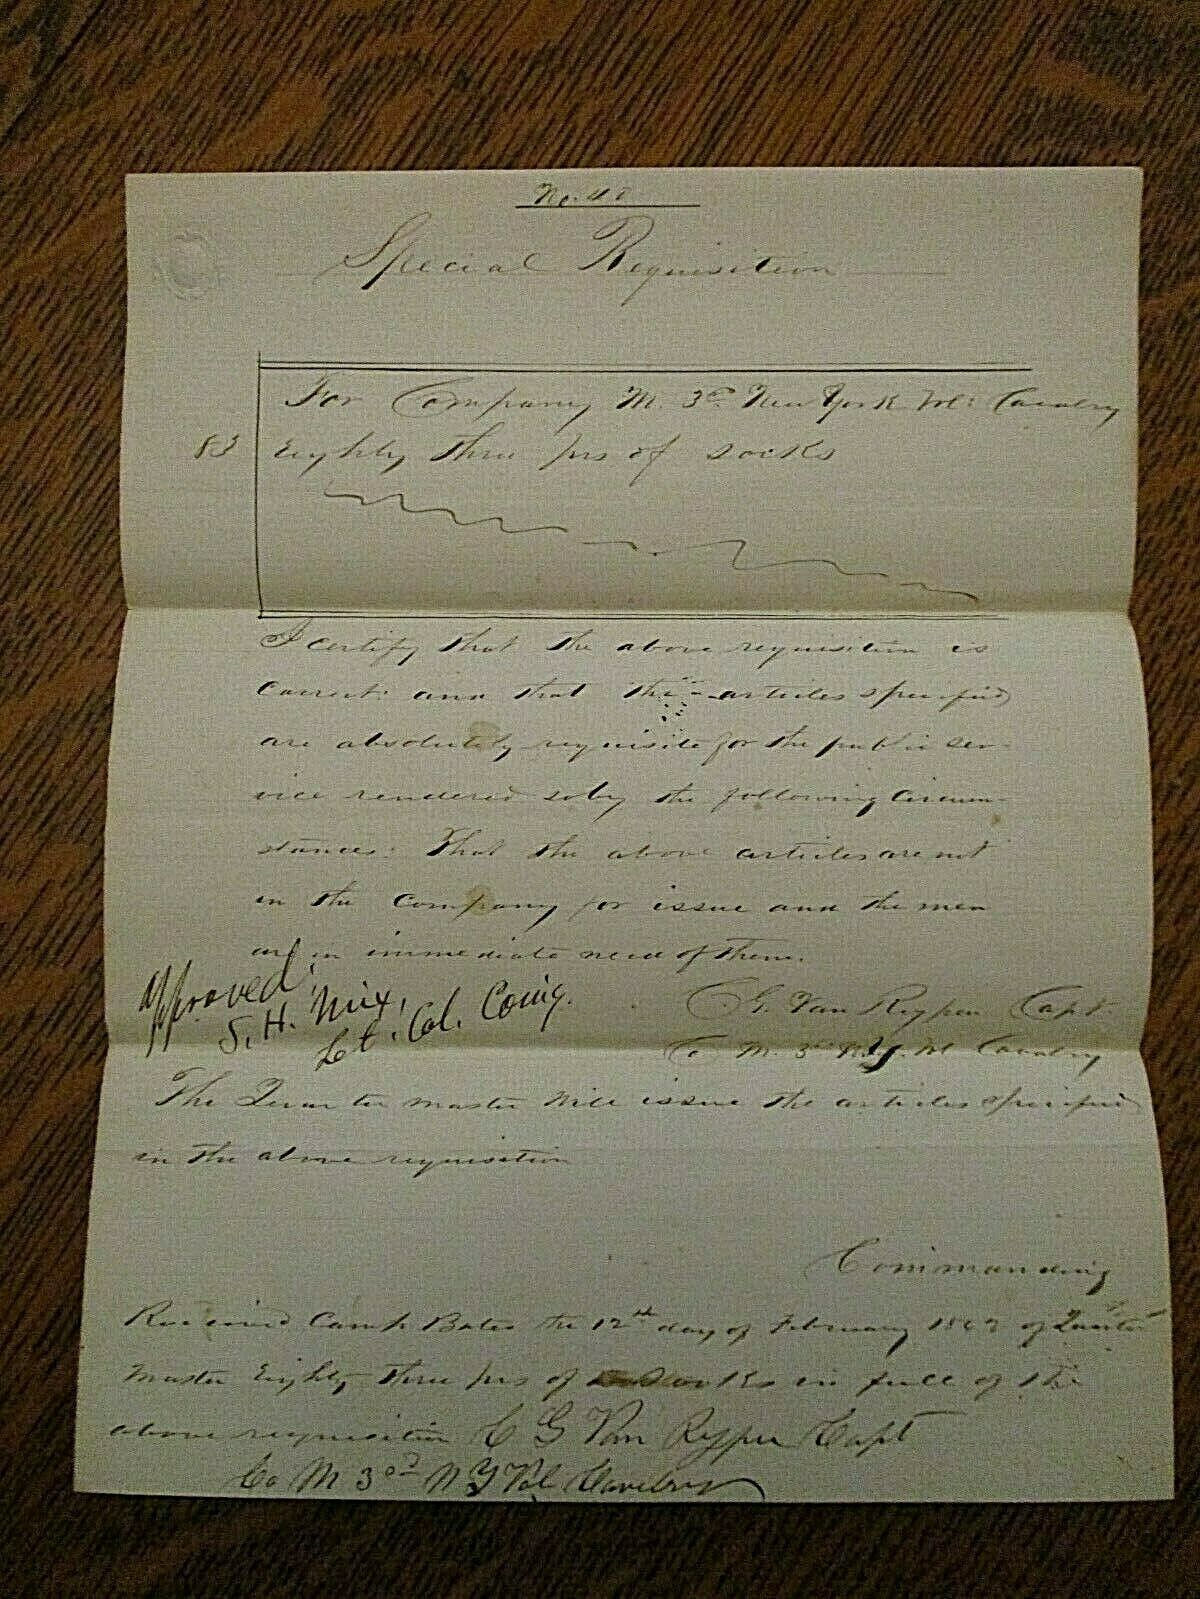 No. 40
Special Requisition
For Company M. 3rd New York Vol: Cavalry
83 Eighty three prs of socks
I certify that the above requisition is
Correct: and that the articles specified
are absolutely requisite for the public ser-
vice rendered so by the following Circum-
stances: That the above articles are not
in the Company for issue and the men
are in immediate need of them.
Approved,
S. H. Mix,
Lt. Col. Comg.
C. G. Van Rypen Capt.
Co M. 3rd N.Y. Vol Cavalry
The Quarter master will issue the articles specified
in the above requisition
Commanding
Received Camp Bates the 12th day of February 1862 of Quarter
Master Eighty three prs of Socks in full of the
above requisition C G Van Rypen Capt
Co M 3rd N Y Vol Cavelry